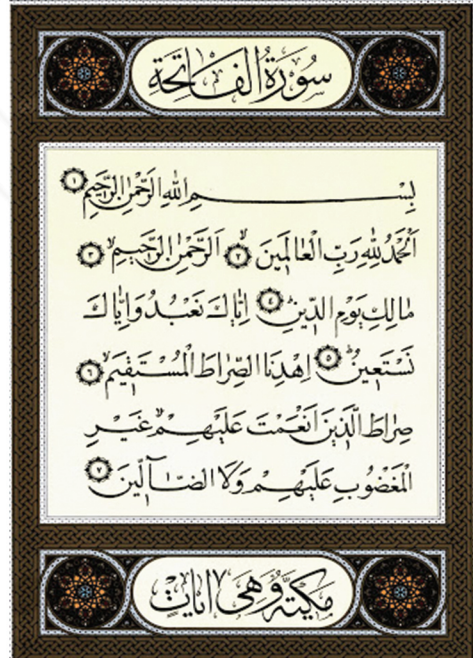 سُورَةُ الْفَاتِحَةِ
بِسْمِ اللهِ الرَّحْمٰنِ الرَّحِيمِ ١
اَلْحَمْدُ لِلّٰهِ رَبِّ الْعَالَمِينَ ٢ اَلرَّحْمٰنِ الرَّحِيمِ ٣
مَالِكِ يَوْمِ الدِّينِ ٤ اِيَّاكَ نَعْبُدُ وَاِيَّاكَ
نَسْتَعِينُ ٥ اِهْدِنَا الصِّرَاطَ الْمُسْتَقِيمَ ٦
صِرَاطَ الَّذِينَ اَنْعَمْتَ عَلَيْهِمْ غَيْرِ
الْمَغْضُوبِ عَلَيْهِمْ وَلَا الضَّٓالِّينَ ٧
مَكِّيَّةٌ وَهِيَ ٧ اٰيَاتٍ